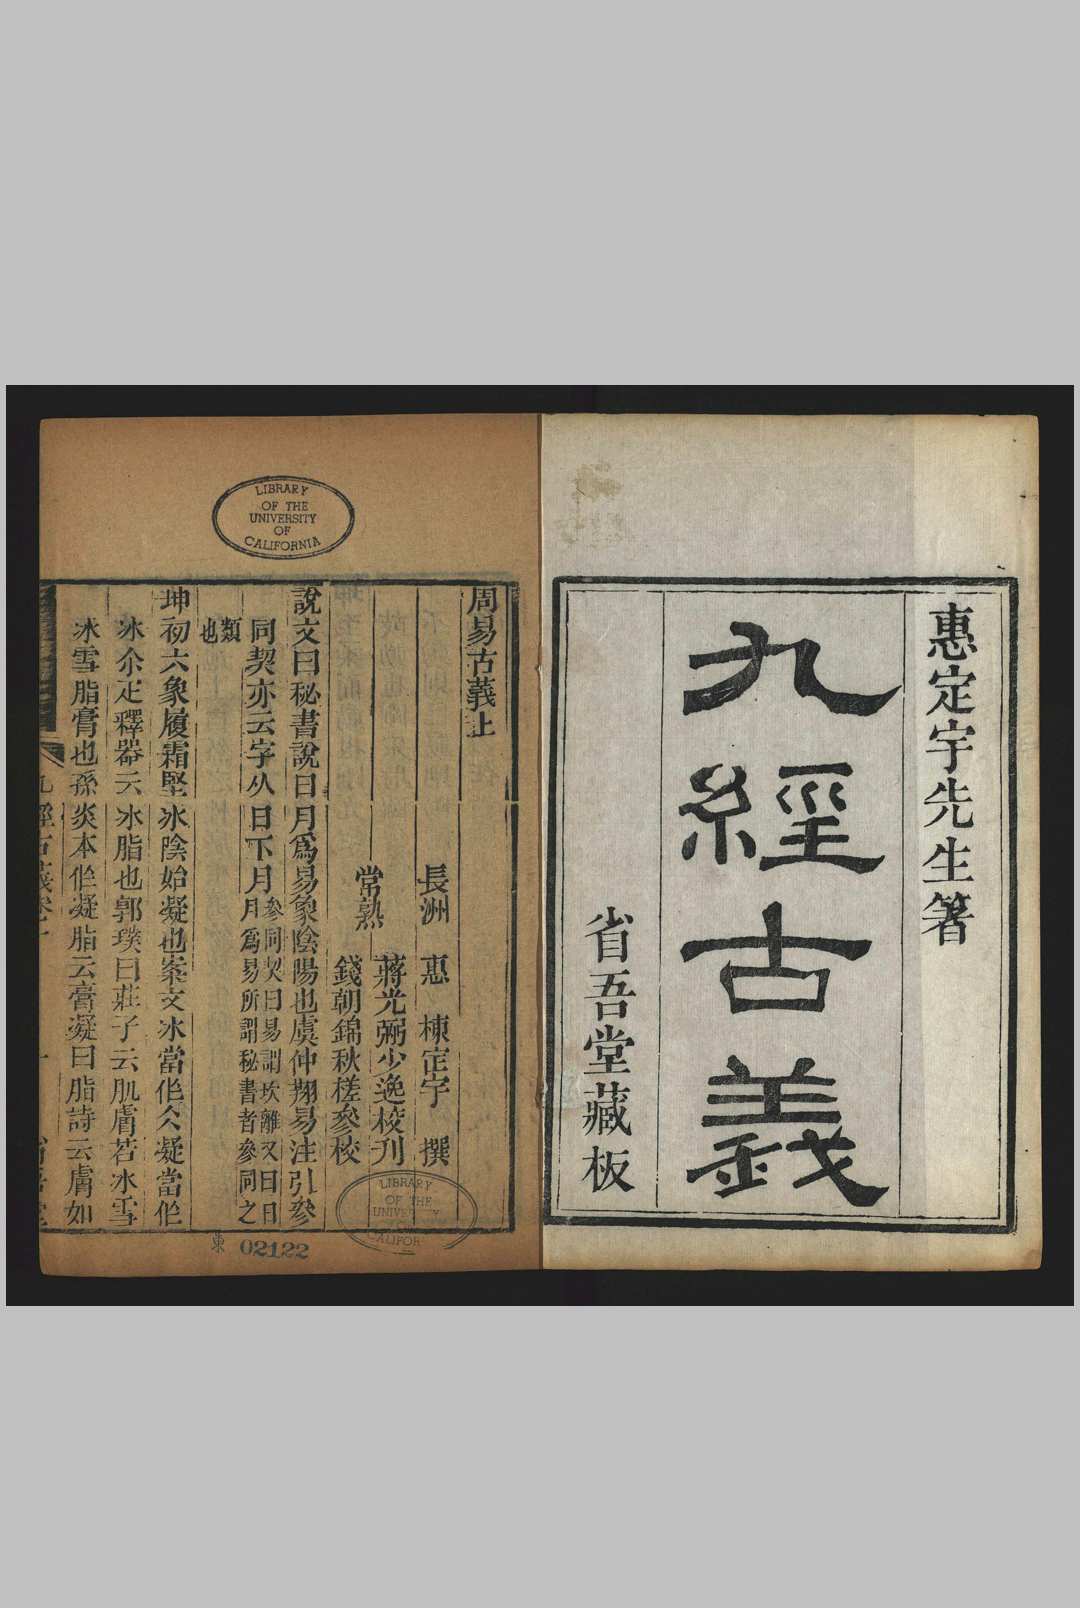 惠定宇先生箸
九經古義
省吾堂藏板
LIBRARY
OF THE
UNIVERSITY
OF
CALIFORNIA
周易古義上
長洲 惠 棟定宇 撰
常熟 蔣光弼少逸校刊
錢朝錦秋槎參校
說文曰秘書說日月為易象陰陽也虞仲翔易注引參
同契亦云字从日下月
參同契曰易謂坎離又曰日
月為易所謂秘書者參同之
類
也
坤初六象履霜堅冰陰始凝也案文冰當作仌凝當作
冰尒疋釋器云冰脂也郭璞曰莊子云肌膚若冰雪
冰雪脂膏也孫炎本作凝脂云膏凝曰脂詩云膚如
九經古義卷一
LIBRARY
OF THE
UNIVERSITY
OF
CALIFOR
東 02122